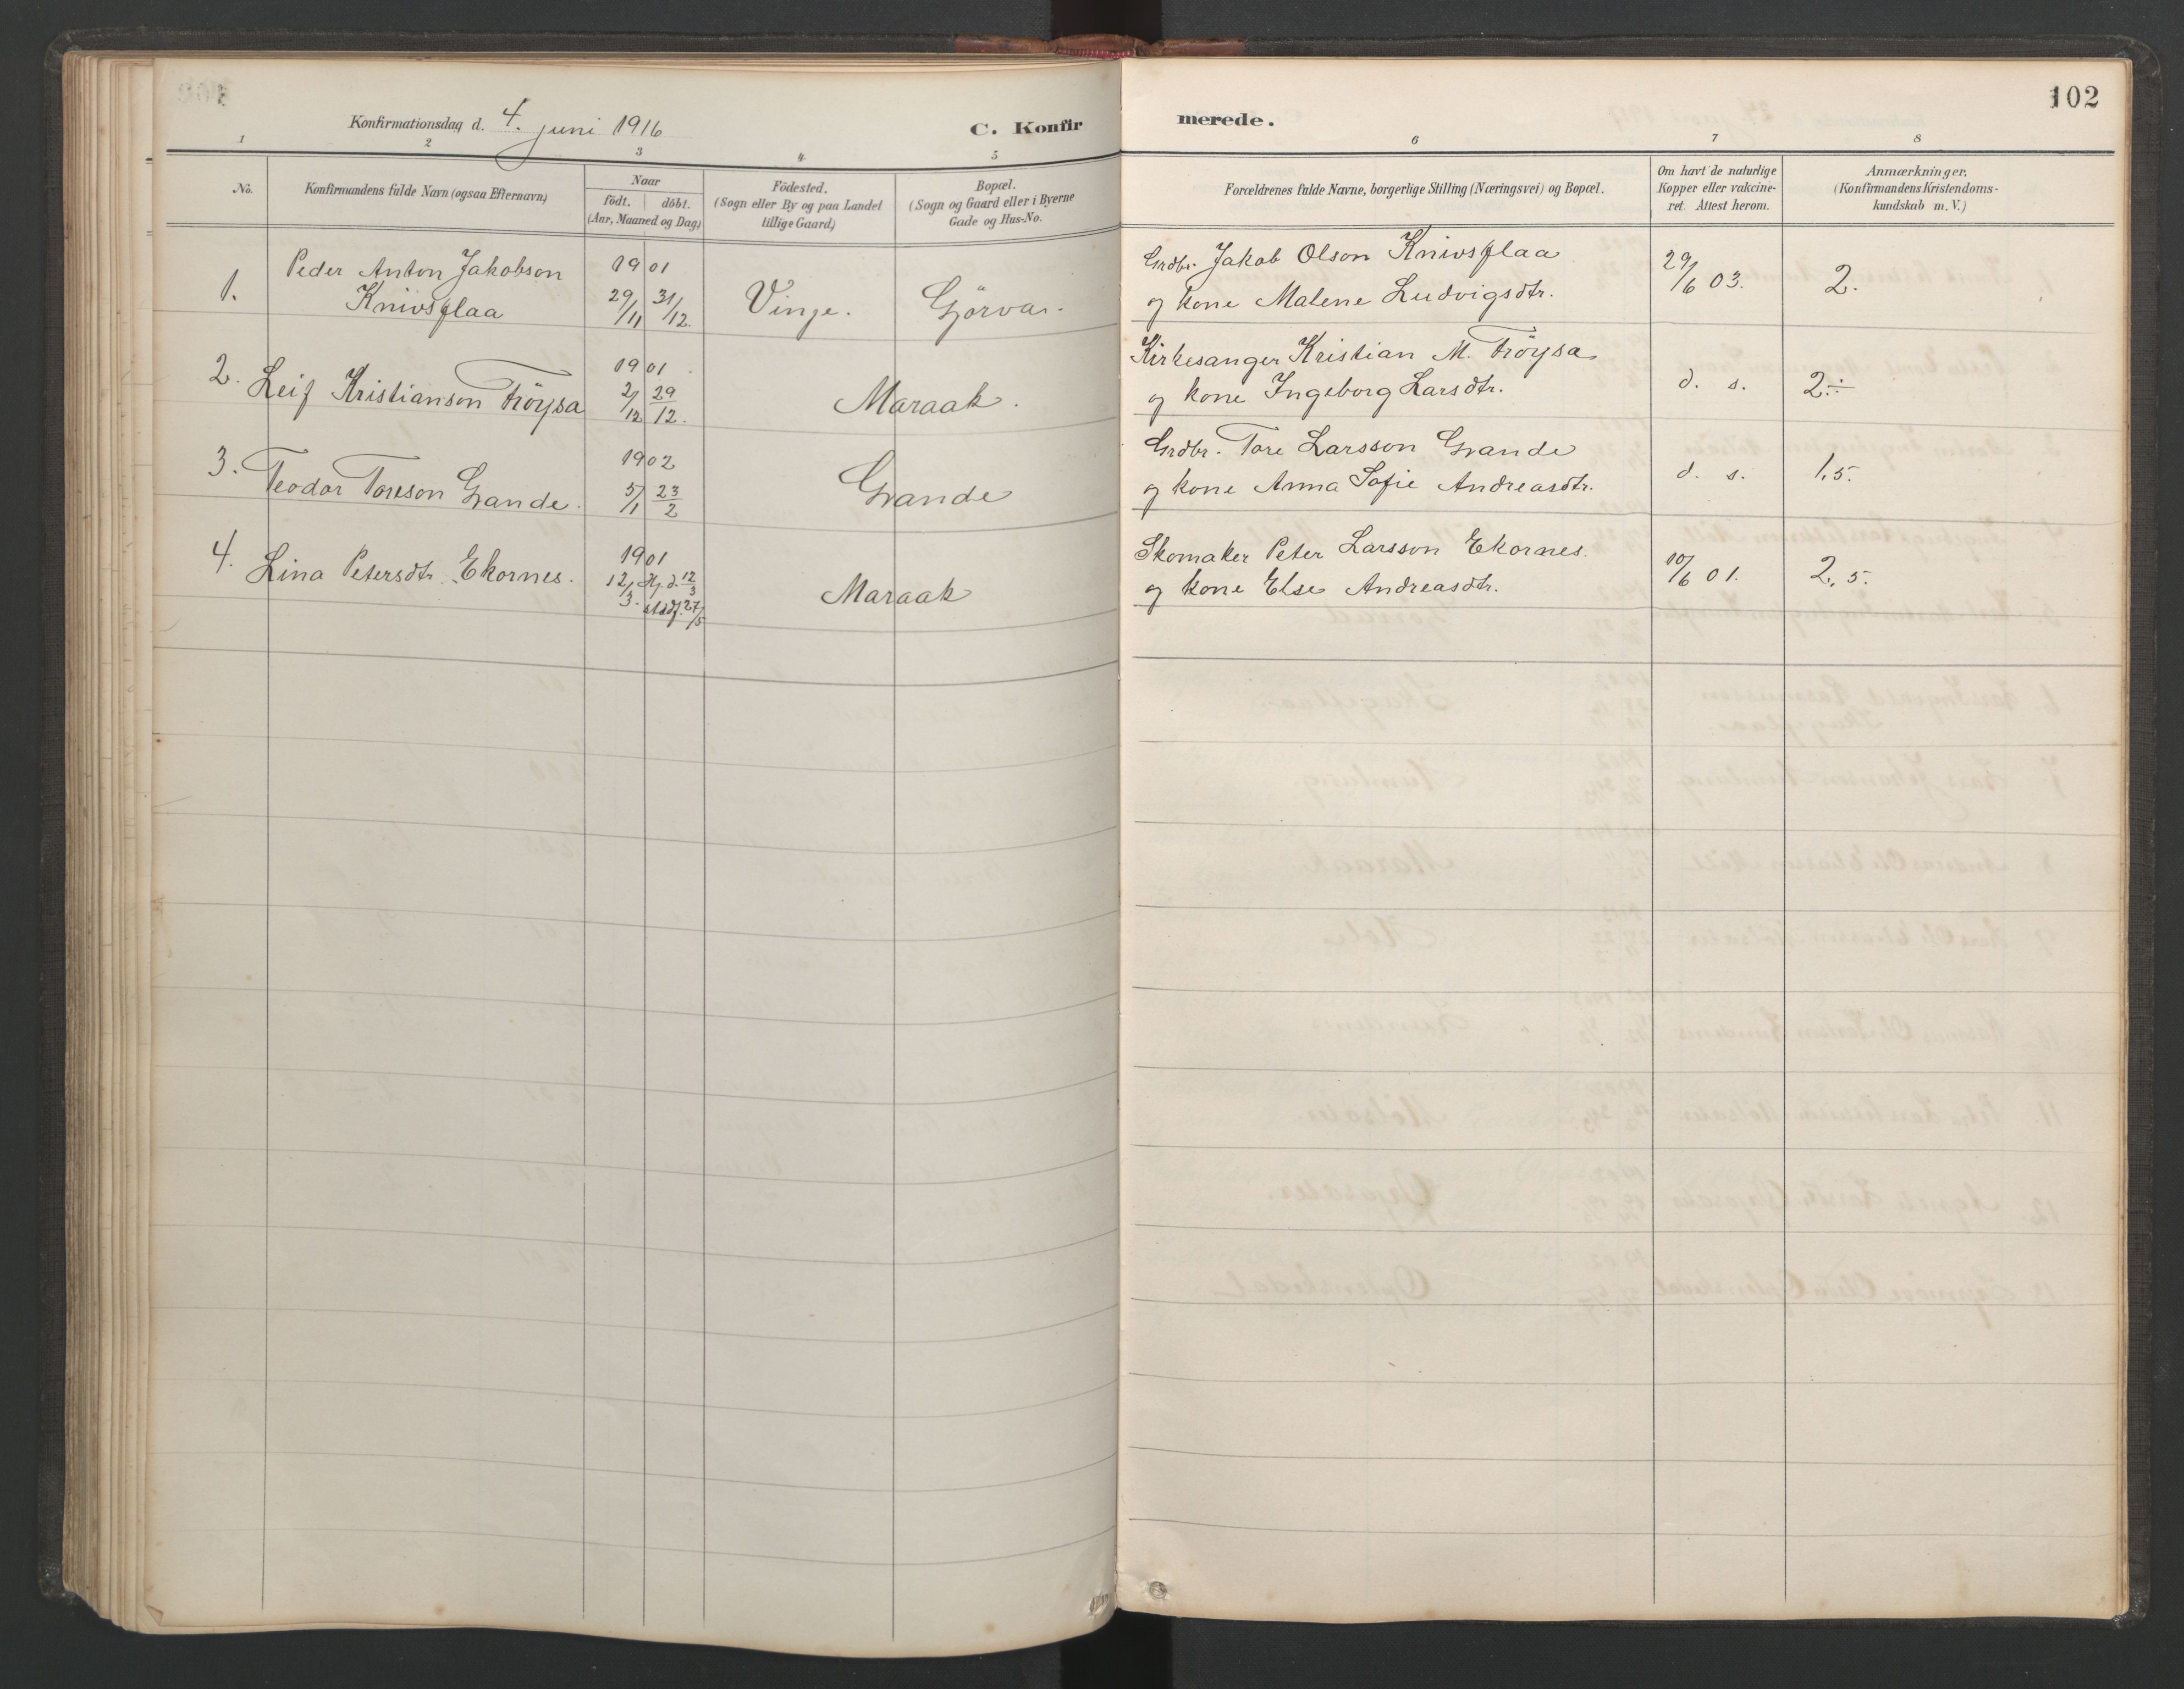 102
Konfirmationsdag d. 4. juni 1916
C. Konfir merede.
1 2 3 4 5 6 7 8
No.
Konfirmandens fulde Navn (ogsaa Efternavn)
Naar
födt. döbt.
(Aar, Maaned og Dag)
Födested.
(Sogn eller By og paa Landet
tillige Gaard)
Bopæl.
(Sogn og Gaard eller i Byerne
Gade og Hus-No.
Forældrenes fulde Navne, borgerlige Stilling (Næringsvei) og Bopæl.
Om havt de naturlige
Kopper eller vakcine-
ret. Attest herom.
Anmærkninger,
(Konfirmandens Kristendoms-
kundskab m. V.)
Peder Anton Jakobson 1901 Grdbr. Jakob Olson Knivsflaa
1. Knivsflaa 29/11 31/12. Vinje. Gjörva. og kone Malene Ludvigsdtr. 29/6 03. 2.
1901 Kirkesanger Kristian M. Fröysa
2. Leif Kristianson Fröysa 2/12 29/12. Maraak. og kone Ingeborg Larsdtr. d. s. 2÷
1902 Grdbr. Tore Larsson Grande
3. Teodor Toreson Grande. 5/1 23/2 Grande og kone Anna Sofie Andreasdtr. d. s. 1,5.
1901 Skomaker Peter Larsson Ekornes.
4. Lina Petersdtr. Ekornes. 12/3. Hj. d. 12/3 Maraak og kone Else Andreasdtr. 10/6 01. 2,5.
stadf. 27/5